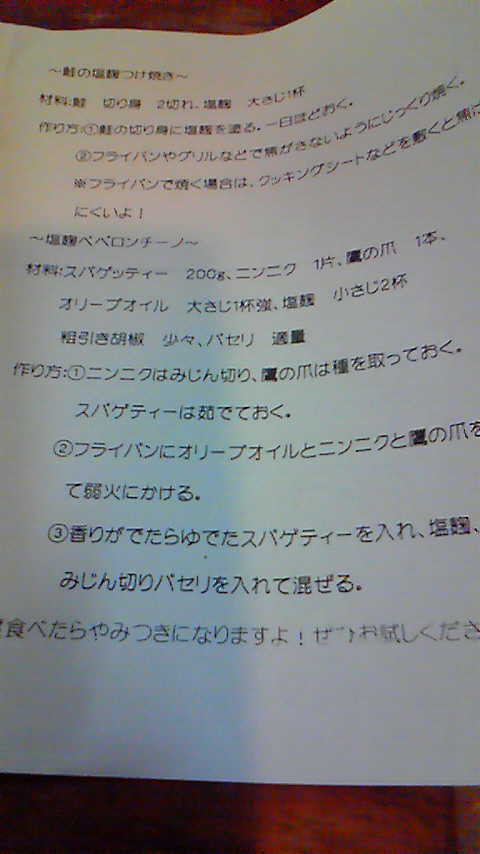 ～鮭の塩麹つけ焼き～
材料:鮭　切り身　2切れ、塩麹　大さじ1杯
作り方:①鮭の切り身に塩麹を塗る。一日ほどおく。
②フライパンやグリルなどで焦がさないようにじっくり焼く。
※フライパンで焼く場合は、クッキングシートなどを敷くと焦げ
にくいよ！
～塩麹ペペロンチーノ～
材料:スパゲッティー　200g、ニンニク　1片、鷹の爪　1本、
オリーブオイル　大さじ1杯強、塩麹　小さじ2杯
粗引き胡椒　少々、パセリ　適量
作り方:①ニンニクはみじん切り、鷹の爪は種を取っておく。
スパゲティーは茹でておく。
②フライパンにオリーブオイルとニンニクと鷹の爪を
て弱火にかける。
③香りがでたらゆでたスパゲティーを入れ、塩麹、
みじん切りパセリを入れて混ぜる。
食べたらやみつきになりますよ！ぜひお試しくださ